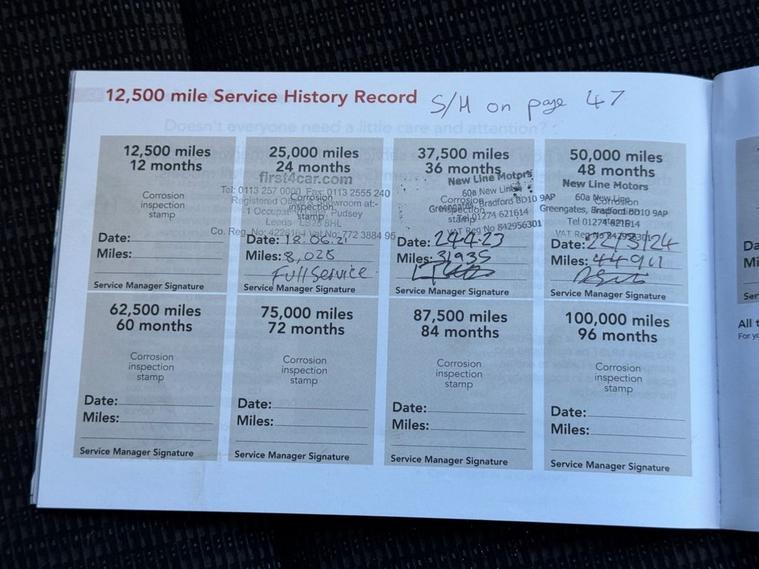 12,500 mile Service History Record S/H on page 47
12,500 miles
12 months
Corrosion
inspection
stamp
Date:
Miles:
Service Manager Signature
25,000 miles
24 months
first4car.com
Tel: 0113 257 0000 Fax: 0113 2555 240
Corrosion
inspection
stamp
Registered Office & Showroom at:-
Pudsey
Leeds
Date: 18.06.21
Miles: 8,025
Full Service
Service Manager Signature
37,500 miles
36 months
New Line Motors
60a New Line
Greengates, Bradford BD10 9AP
Tel 01274 621614
VAT Reg No 842956301
Corrosion
inspection
stamp
Date: 24.4.23
Miles: 31935
Service Manager Signature
50,000 miles
48 months
New Line Motors
60a New Line
Greengates, Bradford BD10 9AP
Tel 01274 621614
Corrosion
Date: 22/3/24
Miles:
Service Manager Signature
62,500 miles
60 months
Corrosion
inspection
stamp
Date:
Miles:
Service Manager Signature
75,000 miles
72 months
Corrosion
inspection
stamp
Date:
Miles:
Service Manager Signature
87,500 miles
84 months
Corrosion
inspection
stamp
Date:
Miles:
Service Manager Signature
100,000 miles
96 months
Corrosion
inspection
stamp
Date:
Miles:
Service Manager Signature
Da
Mi
Ser
All t
For yo